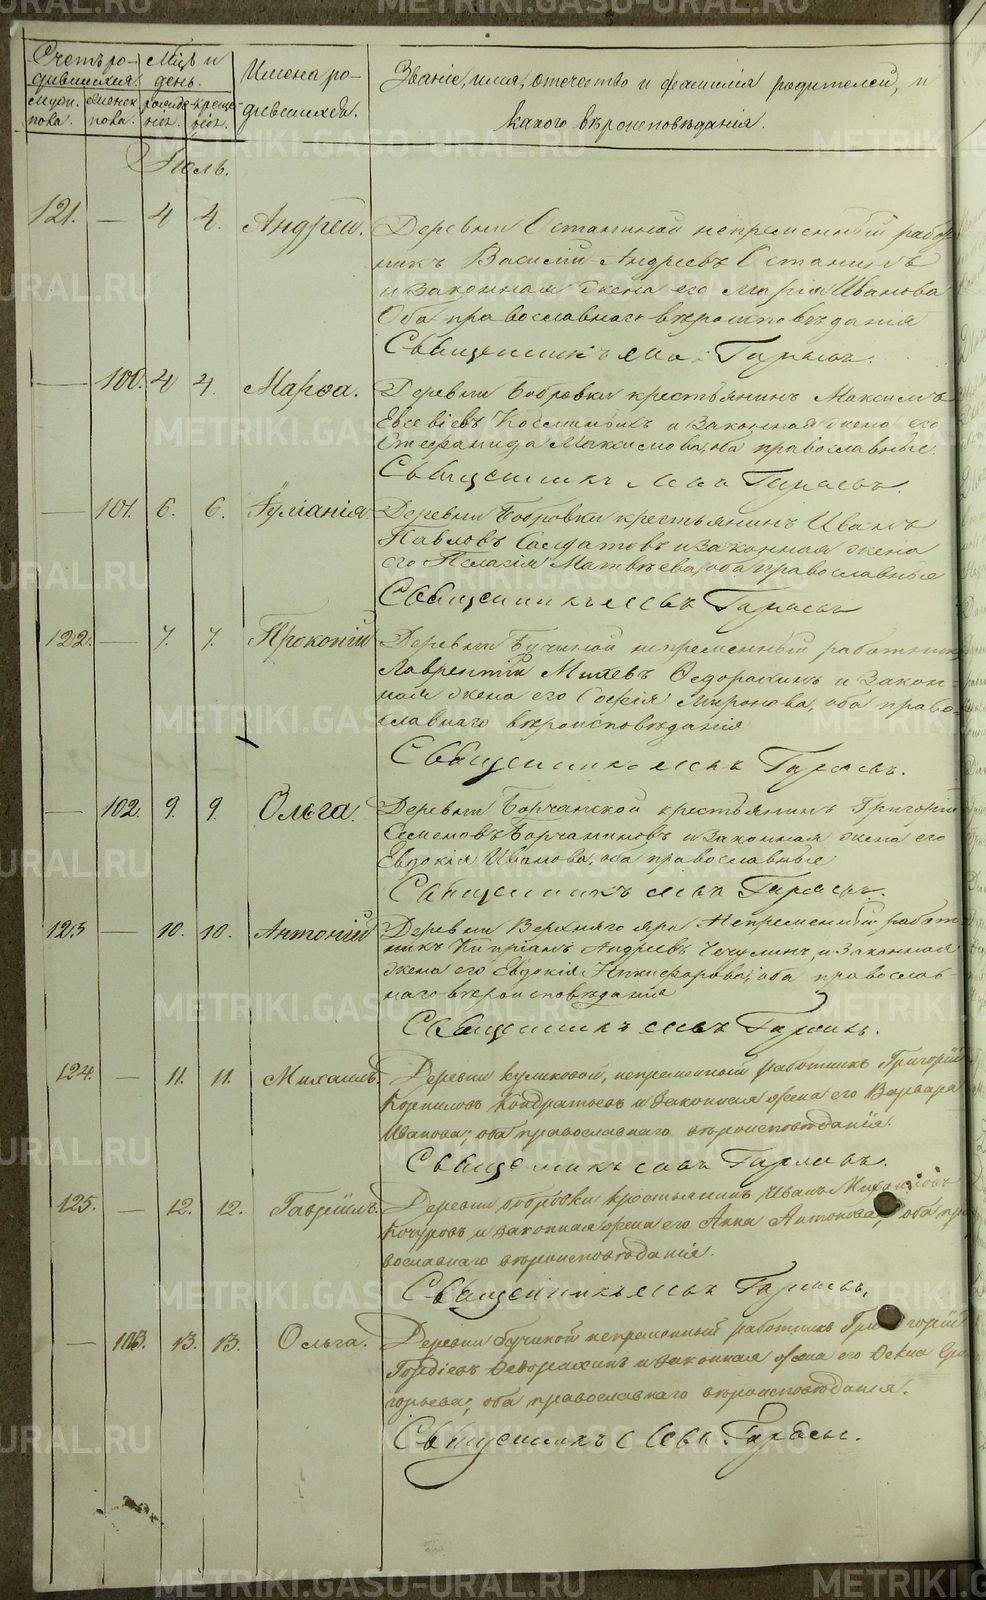 METRIKI.GASO-URAL.RU
Счетъ ро-
дившихся.
Муж.
пола.
Женск
пола.
Мѣс. и
день.
рожде-
нія.
креще-
нія.
Имена ро-
дившихся.
Званіе, имя, отчество и фамилія родителей, и
какого вѣроисповѣданія.
Іюль.
121. — 4 4. Андрей.
Деревни Останиной непремѣнный работ
никъ Василій Андреевъ Останинъ
и законная жена его Марія Иванова
Оба православнаго вѣроисповѣданія
Священникъ Гаряевъ.
— 100. 4 4. Марѳа.
Деревни Бобровки крестьянинъ Максимъ
Евсевіевъ и законная жена его
Стефанида Максимова, оба православные.
Священникъ Гаряевъ.
— 101. 6. 6. Іуліанія.
Деревни Бобровки крестьянинъ Иванъ
Павловъ Солдатовъ и законная жена
его Пелагія Матвѣева, оба православные
Священникъ Гаряевъ
122. — 7. 7. Прокопій
Деревни непремѣнный работник
Лаврентій Михѣевъ Ѳедорахинъ и закон-
ная жена его Софія Миронова, оба право-
славнаго вѣроисповѣданія
Священникъ Гаряевъ.
— 102. 9. 9. Ольга.
Деревни Борчанской крестьянинъ Григорій
Семеновъ Борчаниновъ и законная жена его
Евдокія Иванова, оба православные
Священникъ Гаряевъ.
123 — 10. 10. Антоній
Деревни Верхняго яра Непремѣнный работ
никъ Кипріанъ Андреевъ Чечулинъ, и законная
жена его Евдокія Никифорова, оба православ-
наго вѣроисповѣданія
Священникъ Гаряевъ.
124. — 11. 11. Михаилъ.
Деревни Куликовой, непремѣнный работникъ Григорій
Корниловъ Кондратьевъ и законная жена его Варвара
Иванова; оба православнаго вѣроисповѣданія.
Священникъ Гаряевъ.
125. — 12. 12. Гавріилъ.
Деревни Бобровки крестьянинъ Иванъ Михайловъ
Кочуровъ и законная жена его Анна Антонова, оба пра
вославнаго вѣроисповѣданія.
Священникъ Гаряевъ.
— 103. 13. 13. Ольга.
Деревни непремѣнный работникъ Григорій
Гордіевъ и законная жена его Гри
горьева; оба православнаго вѣроисповѣданія.
Священникъ Гаряевъ.